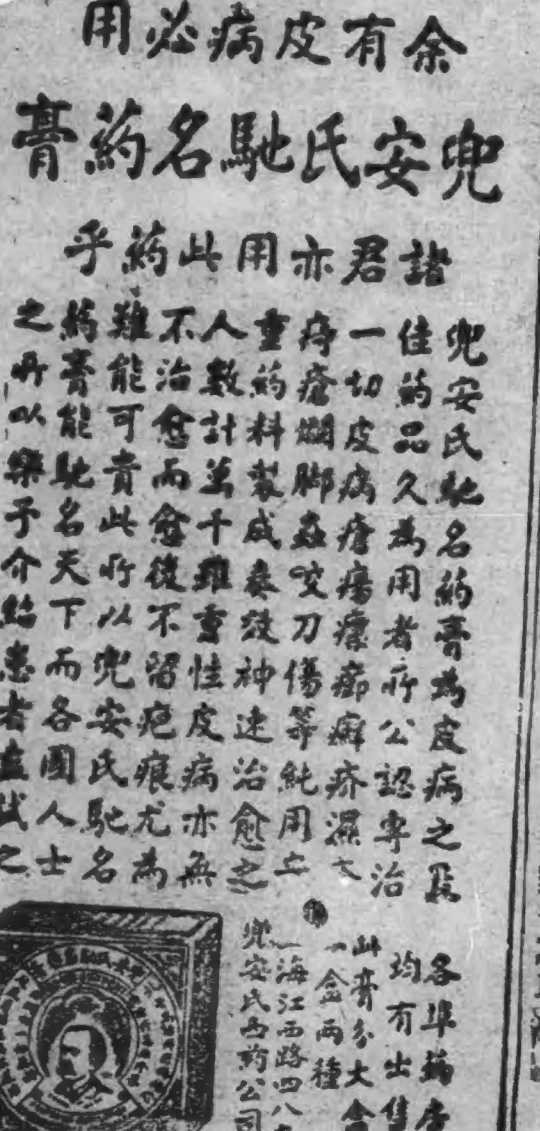 余有皮病必用
兜安氏馳名葯膏
諸君亦用此葯乎
兜安氏馳名葯膏為皮病之最
佳葯品久為用者所公認專治
一切皮病瘡瘍癤癬疥濕
痔瘡爛脚蟲咬刀傷等純用
重葯料製成奏效神速治愈之
人數計萬千雖重性皮病亦無
不治愈而愈後不留疤痕尤為
難能可貴此所以兜安氏馳名
葯膏能馳名天下而各國人士
之所以樂予介紹患者盍試之
各埠葯房
均有出售
此膏分大盒
盒兩種
海江西路四八
兜安氏西葯公司